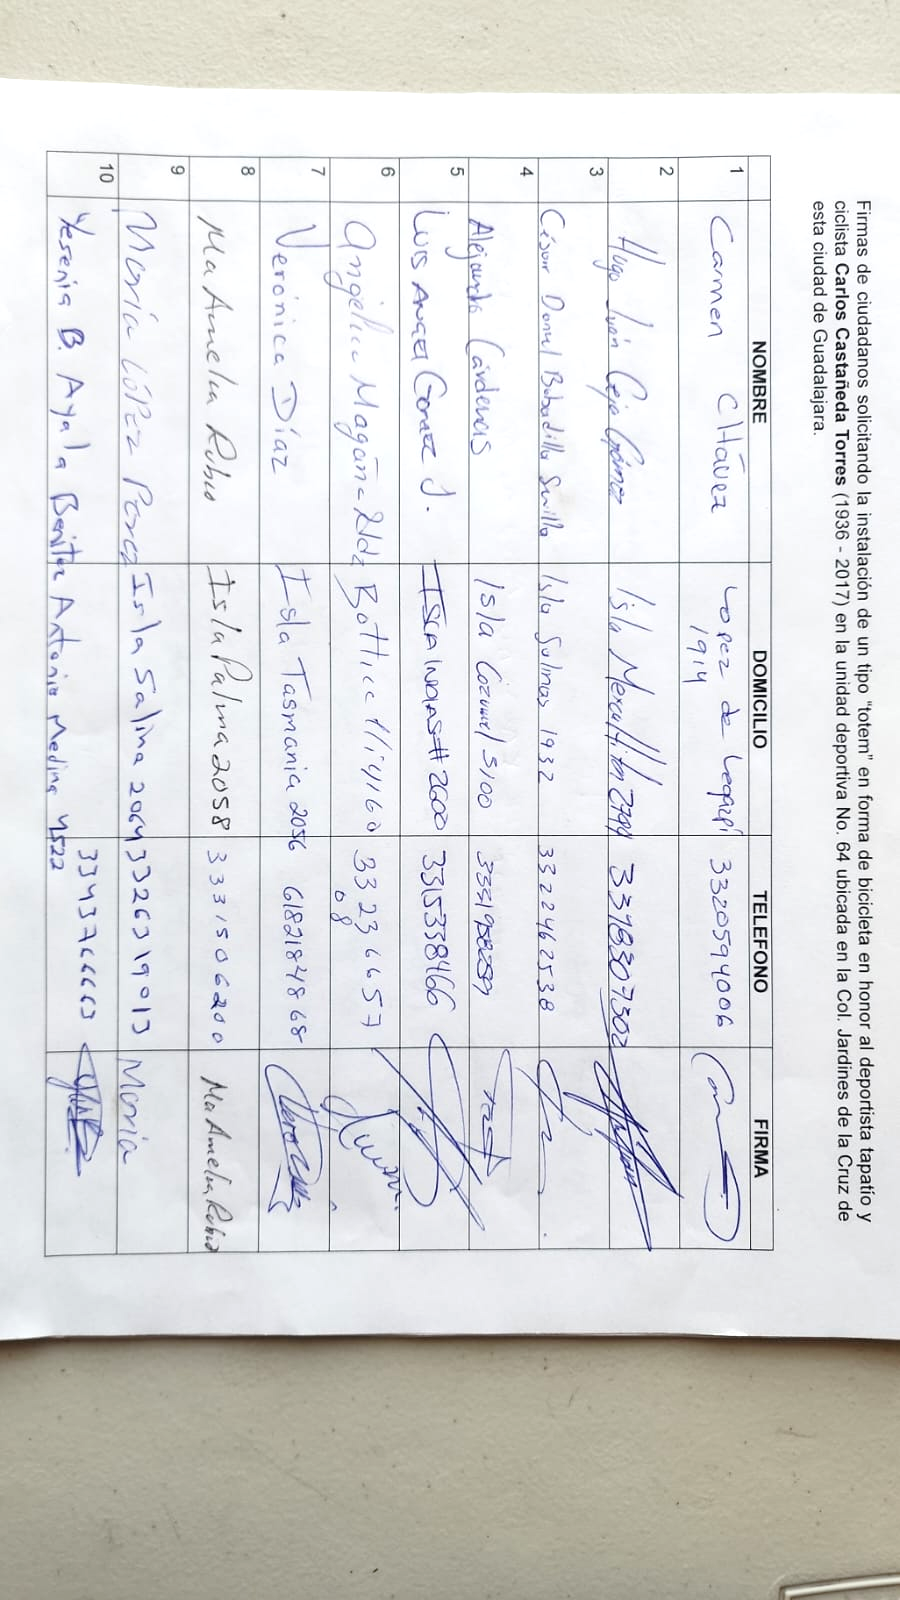 Firmas de ciudadanos solicitando la instalación de un tipo "totem" en forma de bicicleta en honor al deportista tapatío y
ciclista Carlos Castañeda Torres (1936 - 2017) en la unidad deportiva No. 64 ubicada en la Col. Jardines de la Cruz de
esta ciudad de Guadalajara.
NOMBRE DOMICILIO TELEFONO FIRMA
1 Carmen Chávez Lopez de Legazpi 1914 3320594006
2 Hugo Iván Ceja Gómez Isla 3318307302
3 César Bobadilla Isla Salinas 1932 3322462538
4 Alejandro Cárdenas Isla Cozumel 3100
5 Luis Angel Gomez J. Isla Indias # 2600 3315338466
6 Angélica Magaña Hdz 33236657 08
7 Verónica Díaz Isla Tasmania 2056 6182184868
8 Ma Amelia Rubio Isla Palma 2058 3331506200 Ma Amelia Rubio
9 María López Perez Isla Salina 2064 3326319013 María
10 Yesenia B. Ayala Benitez Antonio Medina 4522 3343766663